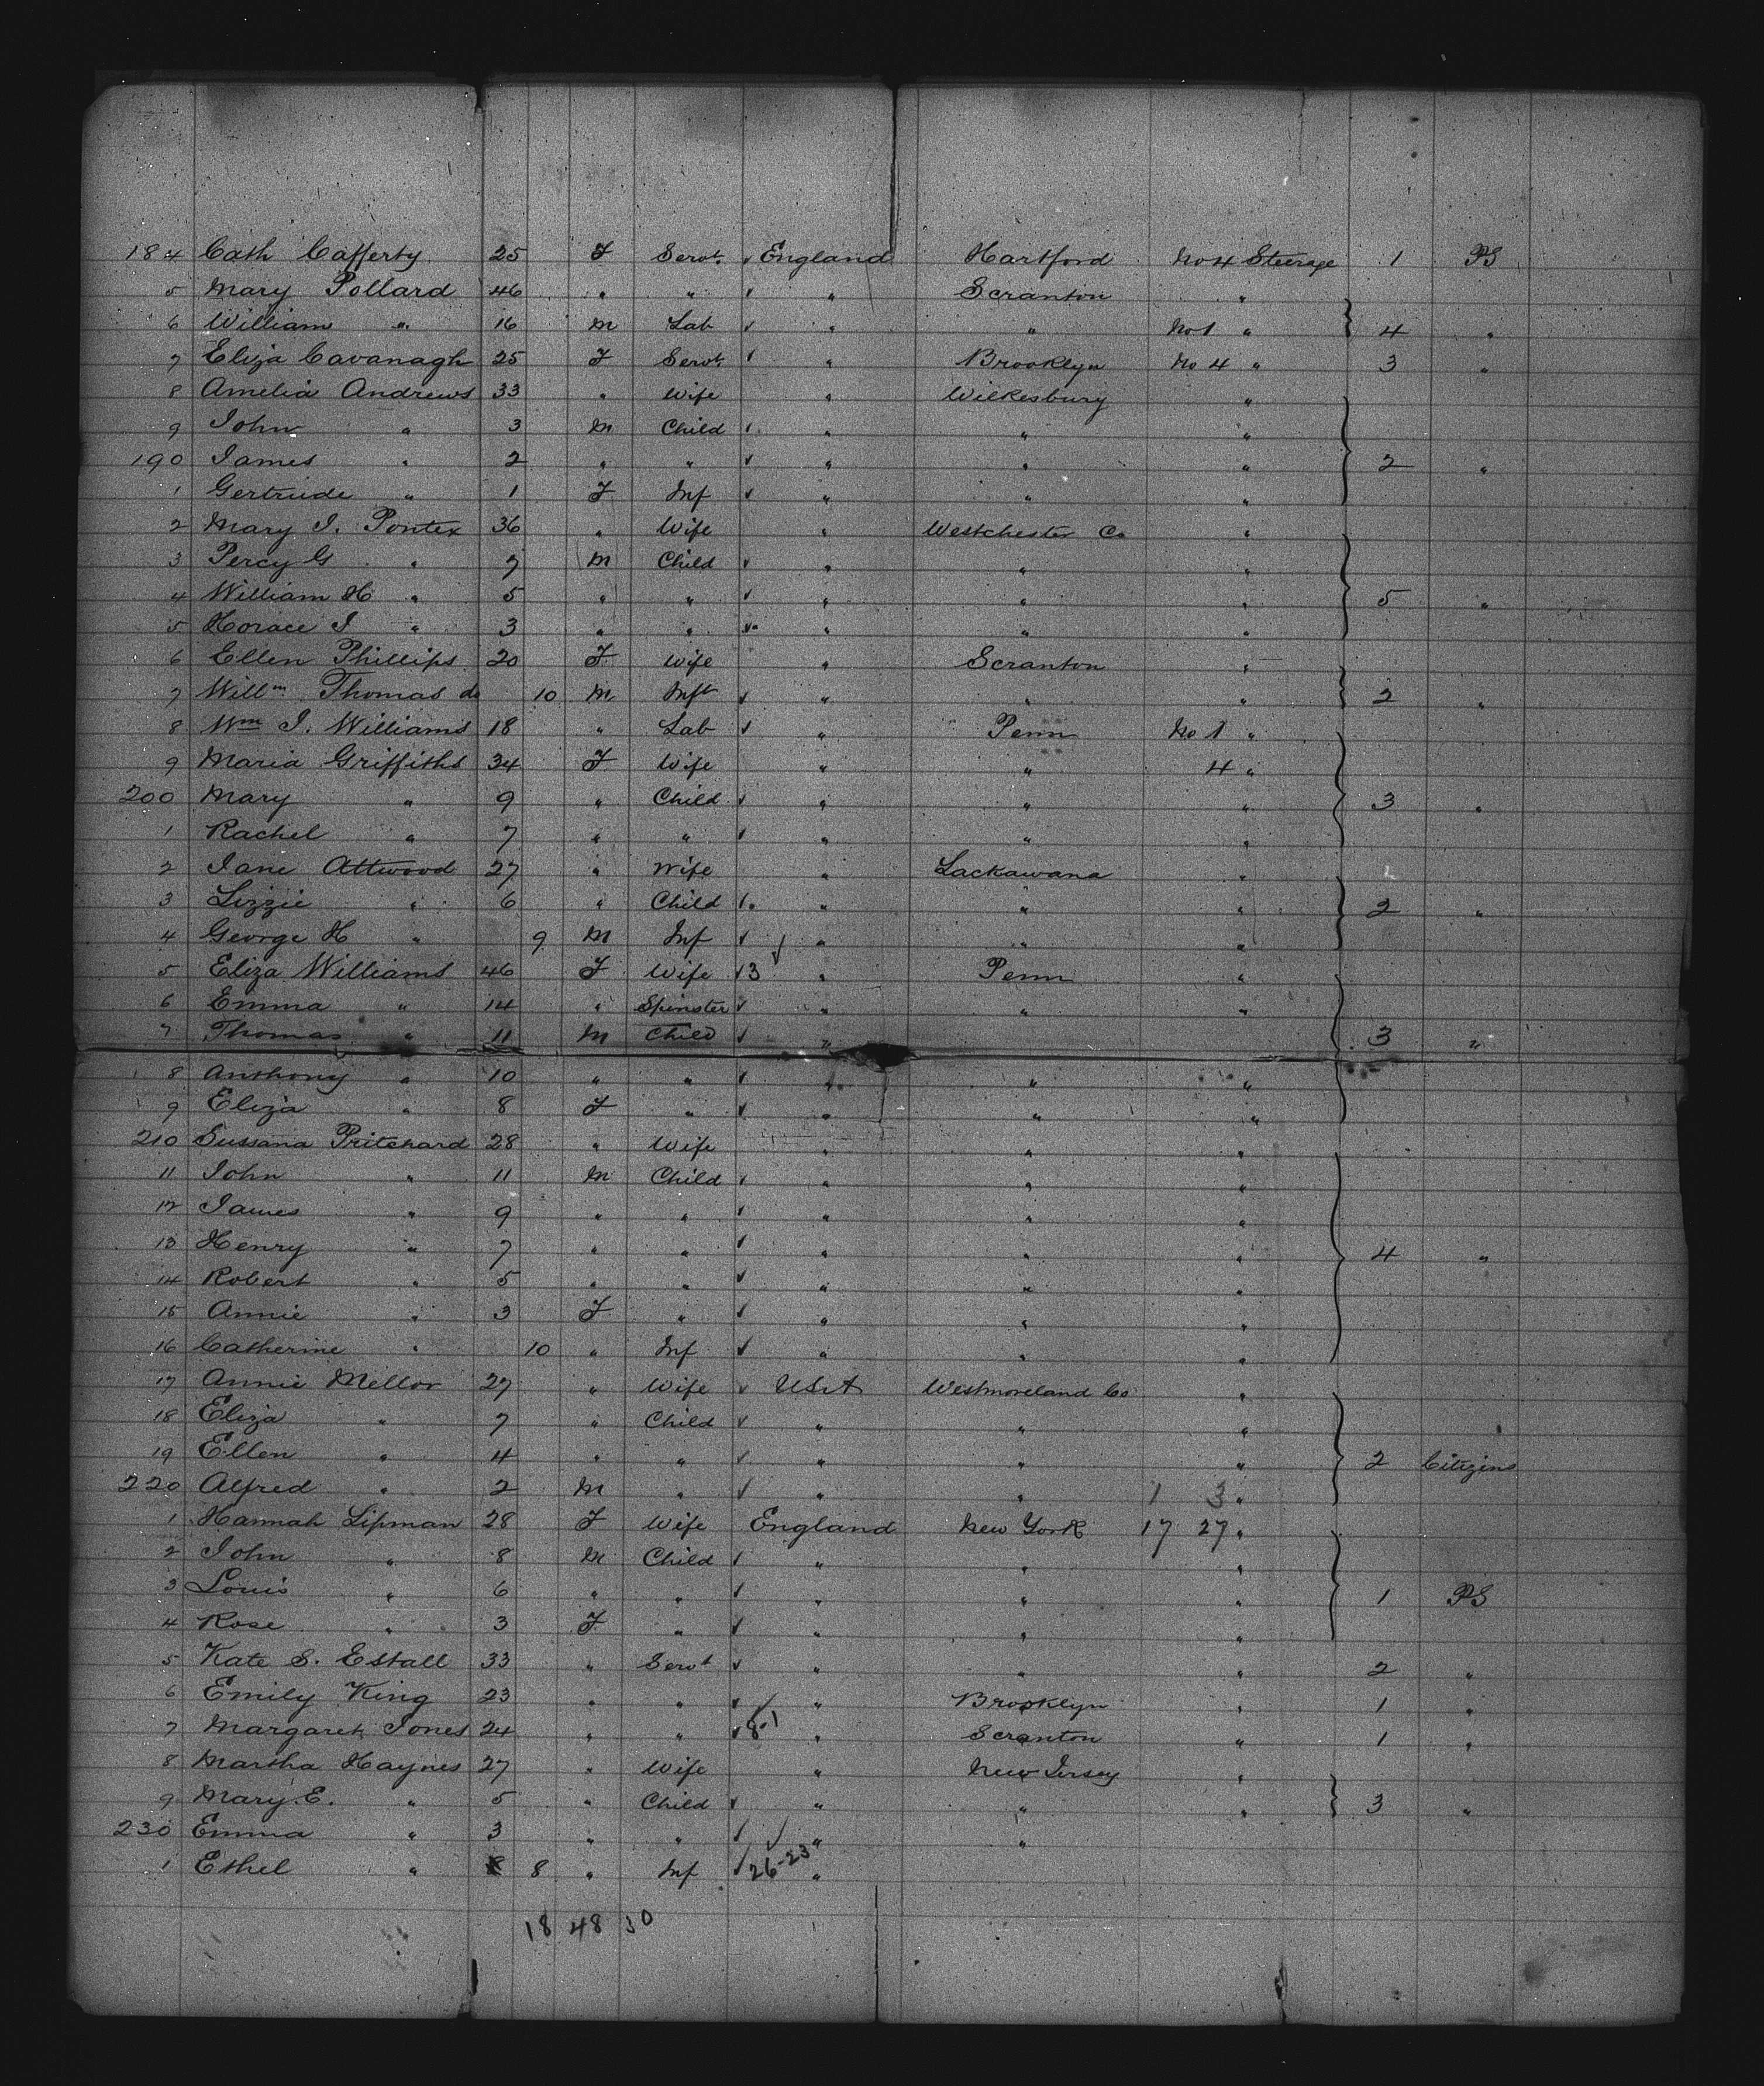 184 Cath Cafferty 25 F Servt. ✓ England Hartford No 4 Steerage 1 PS
5 Mary Pollard 46 " " ✓ " Scranton "
6 William " 16 M Lab ✓ " " No 1 " } 4 "
7 Eliza Cavanagh 25 F Servt ✓ " Brooklyn No 4 " 3 "
8 Amelia Andrews 33 " Wife " Wilkesbury "
9 John " 3 M Child ✓ " " "
190 James " 2 " " ✓ " " " } 2 "
1 Gertrude " 1 F Inf ✓ " " "
2 Mary J. Pontex 36 " Wife " Westchester Co "
3 Percy G " 7 M Child ✓ " " "
4 William H " 5 " " ✓ " " " } 5 "
5 Horace J " 3 " " ✓ " " "
6 Ellen Phillips 20 F Wife " Scranton "
7 Willm Thomas do 10 M Inft ✓ " " " } 2 "
8 Wm J. Williams 18 " Lab ✓ " Penn No 1 "
9 Maria Griffiths 34 F Wife " " 4 "
200 Mary " 9 " Child ✓ " " " } 3 "
1 Rachel " 7 " " ✓ " " "
2 Jane Attwood 27 " Wife " Lackawana "
3 Lizzie " 6 " Child ✓ " " " } 2 "
4 George H " 9 M Inf ✓ ✓ " " "
5 Eliza Williams 46 F Wife ✓ 3 " Penn "
6 Emma " 14 " Spinster ✓ " " "
7 Thomas " 11 M Child ✓ " } 3 "
8 Anthony " 10 " " ✓ " " "
9 Eliza " 8 F " ✓ " " "
210 Sussana Pritchard 28 " Wife " " "
11 John " 11 M Child ✓ " " "
12 James " 9 " " ✓ " " "
13 Henry " 7 " " ✓ " " " } 4 "
14 Robert " 5 " " ✓ " " "
15 Annie " 3 F " ✓ " " "
16 Catherine " 10 " Inf ✓ " " "
17 Annie Mellor 27 " Wife ✓ USA Westmoreland Co "
18 Eliza " 7 " Child ✓ " " "
19 Ellen " 4 " " ✓ " " " } 2 Citizens
220 Alfred " 2 M " ✓ " " 1 3 "
1 Hannah Lipman 28 F Wife England New York 17 27 "
2 John " 8 M Child ✓ " " "
3 Louis " 6 " " ✓ " " " } 1 PS
4 Rose " 3 F " ✓ " " "
5 Kate S. Estall 33 " Servt ✓ " " " 2 "
6 Emily King 23 " " ✓ ✓ " Brooklyn " 1 "
7 Margaret Jones 24 " " ✓ 8-1 " Scranton " 1 "
8 Martha Haynes 27 " Wife " New Jersey "
9 Mary E. " 5 " Child ✓ " " " } 3 "
230 Emma " 3 " " ✓ ✓ " "
1 Ethel " 8 " Inf ✓ 26-23 "
18 48 30